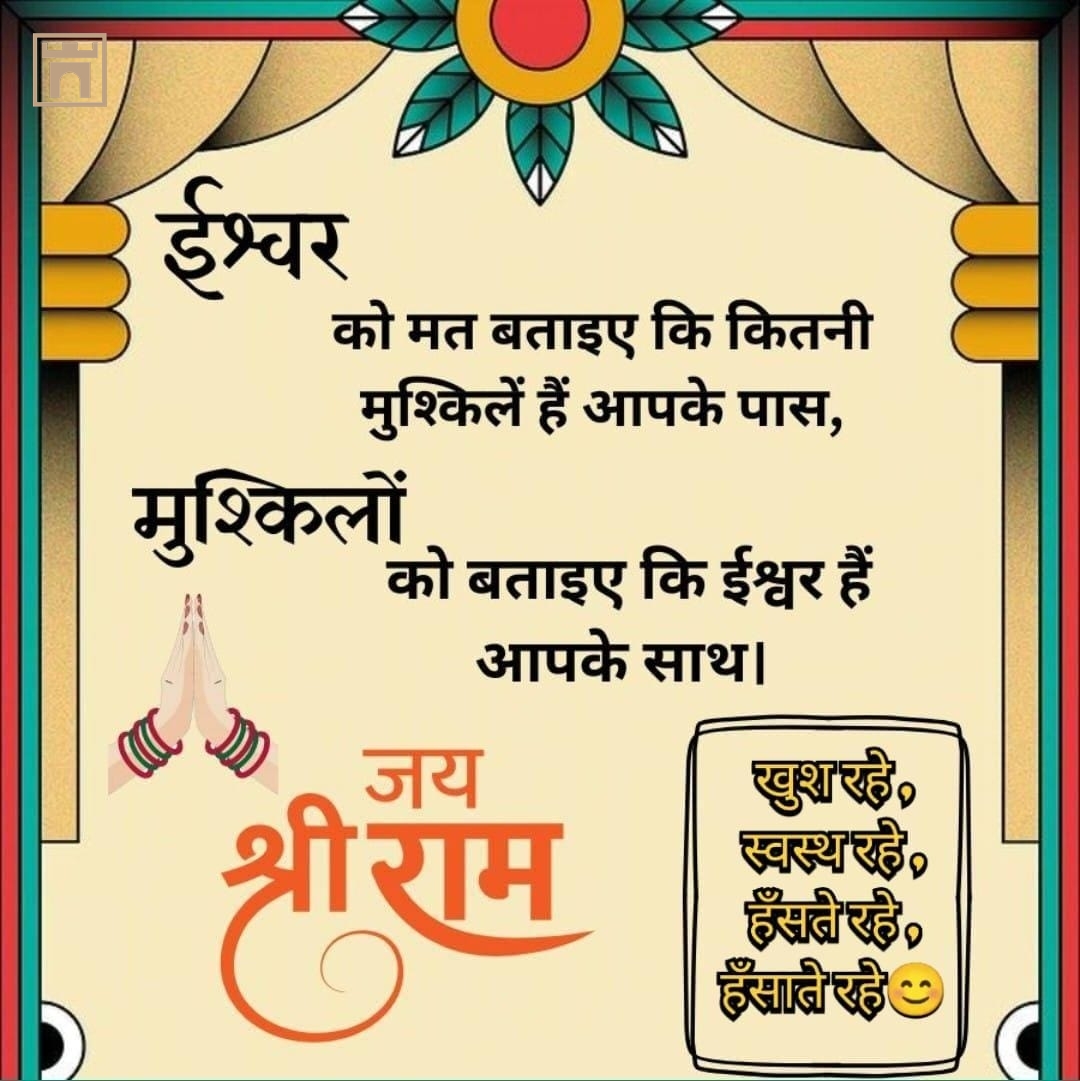 ईश्वर
को मत बताइए कि कितनी
मुश्किलें हैं आपके पास,
मुश्किलों
को बताइए कि ईश्वर हैं
आपके साथ।
जय
श्री राम
खुश रहे ,
स्वस्थ रहे ,
हँसते रहे ,
हँसाते रहे😊